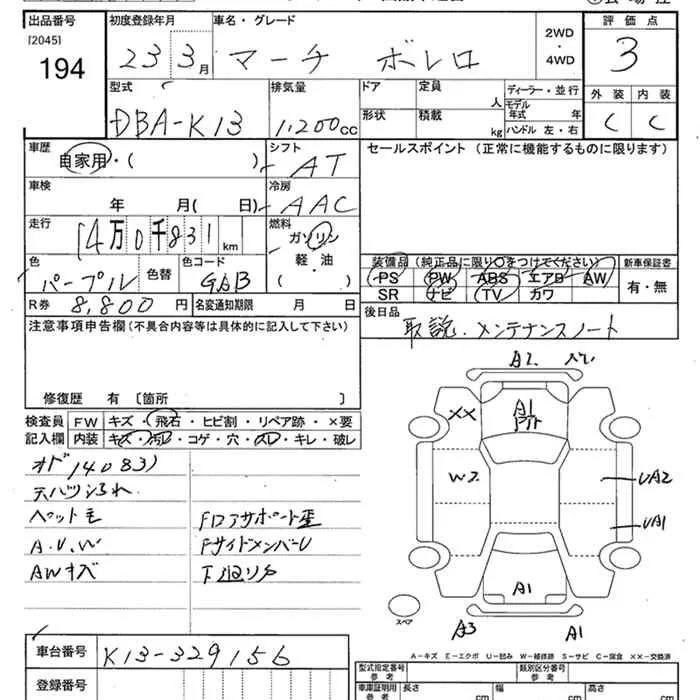 出品番号 初度登録年月 車名・グレード 評価点
[2045]
194 23 3月 マーチ ボレロ 2WD・4WD 3
型式 排気量 ドア 定員 人 ディーラー・並行 外装 内装
DBA-K13 1,200cc 形状 積載 kg モデル年式 年 C C
ハンドル 左・右
車歴 自家用・( ) シフト AT セールスポイント(正常に機能するものに限ります)
車検 年 月( 日) 冷房 AAC
走行 14万0千831km 燃料 ガソリン 軽・油
色 パープル 色替 色コード GAB 装備品(純正品に限り〇をつけてください) 新車保証書
PS PW ABS エアB AW 有・無
SR ナビ TV カワ
R券 8,800円 名変通知期限 月 日 後日品
取説・メンテナンスノート
注意事項申告欄(不具合内容等は具体的に記入して下さい)
修復歴 有 〔箇所 〕
検査員記入欄 FW キズ・飛石・ヒビ割・リペア跡・×要
内装 キズ・汚レ・コゲ・穴・スレ・キレ・破レ
オド140831
ペット毛
A.U.W
AWキズ
FロアサポートE
FサイドメンバーU
A2
XX
A1
W2
UA2
UA1
A1
スペア
A3 A1
A-キズ E-エクボ U-凹み W-補修跡 S-サビ C-腐食 XX-交換済
車台番号 K13-329156
登録番号
型式指定番号 参考 類別区分番号 参考
車庫証明用 参考 長さ cm 幅 cm 高さ cm